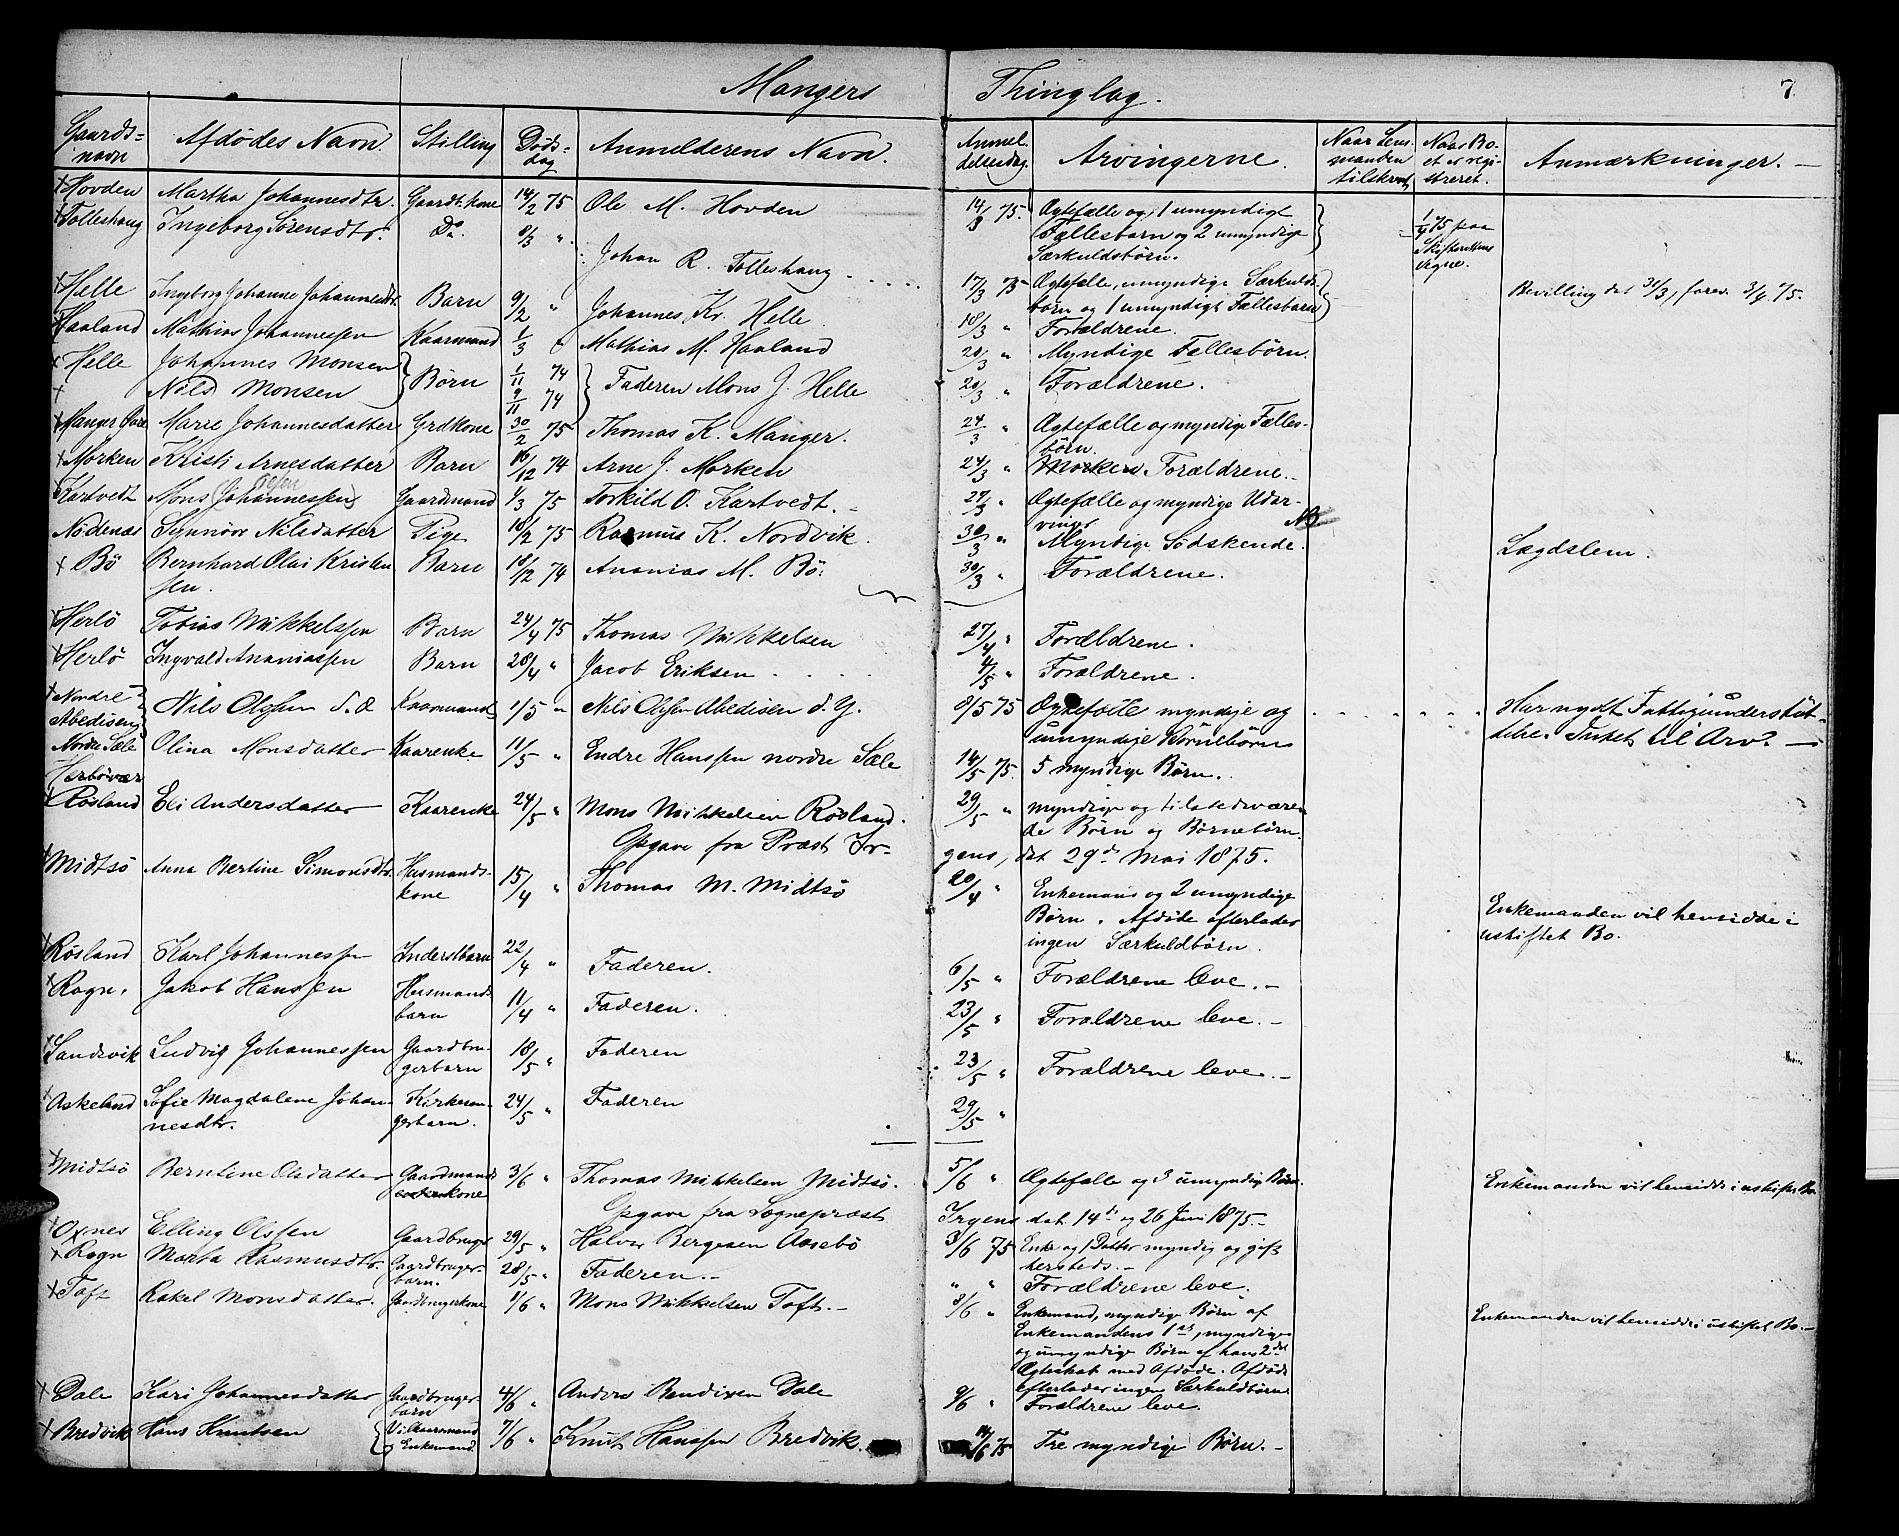 Mangers Thinglag. 7
Gaards=navn Afdødes Navn. Stilling Døds=dag Anmelderens Navn. Anmel.delsesdag. Arvingerne. Naar Lens.manden tilskrevet Naar Bo.et er regi.streret. Anmærkninger. —
Hovden Martha Johannesdtr. Gaardk.kone 14/2 75 Ole M. Hovden 14/3 75. Ægtefælle og 1 umyndigt
Tolleshaug Ingeborg Sørensdtr. Do. 8/3 " Fællesbarn og 2 umyndige 1/4 75 paa
Johan R. Tolleshaug Særkuldsbørn. Skifterettens Vegne.
17/3 75 Ægtefælle, umyndige Særkulds- Bevilling dat 31/3, forev. 3/4 75.
Helle Ingeborg Johanne Johannesdtr. Barn 9/2 " Johannes Kr. Helle børn og 1 umyndigt Fællesbarn
18/3 " Forældrene.
Haaland Mathias Johannessen Kaarmand 1/3 " Mathias M. Haaland 20/3 " Myndige Fællesbørn.
Helle Johannes Monsen Børn 1/11 74 Faderen Mons J. Helle 20/3 " Forældrene.
Nils Monsen 9/11 74
Manger Marie Johannesdatter Grdkone 30/2 75 Thomas K. Manger. 24/3 " Ægtefælle og myndige Fælles-
børn.
Morken Kristi Arnesdatter Barn 16/12 74 Arne J. Morken 24/3 " Morken. Forældrene.
Kartvedt Mons Johannessen Gaardmand 1/3 75 Torkild O. Kartvedt. 27/3 " Ægtefælle og myndige Udar-
vinger NB.
Nödenæs Synnöve Nilsdatter Pige 18/2 75 Rasmus K. Nordvik. 30/3 " Myndige Södskende. Lægdslem.
Bö Bernhard Olai Kristen Barn 18/12 74 Ananias M. Bö. 30/3 " Forældrene.
sen.
Herlö Tobias Mikkelssen Barn 24/4 75 Thomas Mikkelsen 27/4 " Forældrene.
Herlö Ingvald Ananiassen Barn 28/4 " Jacob Eriksen 4/5 " Forældrene.
Nordre Abedisen Nils Olssen d. Æ Kaarmand 1/5 " Nils Olssen Abedisen d. Y. 8/5 75 Ægtefælle myndige og Har nydt Fattigunderstøt-
umyndige Børnebørn telse. Intet til Arv? —
Nordre Sæle Olina Monsdatter Kaarenke 11/5 " Endre Hanssen nordre Sæle 14/5 75. 5 myndige Børn.
Herbövær
Røsland Eli Andersdatter Kaarenke 24/5 " Mons Mikkelsen Røsland. 29/5 " myndige og tilstedeværen
de Børn og Børnebørn.
Opgave fra Præst Ir- gens, dat 29de Mai 1875.
Midtsö Anna Bertine Simonsdtr. Husmands.kone 15/4 " Thomas M. Midtsö 20/4 " Enkemans og 2 umyndige
Børn. Afdøde efterlader Enkemanden vil hensidde i
ingen Særkuldbørn. uskiftet Bo.
Røsland Karl Johannessen Inderstbarn 22/4 " Faderen. 6/5 " Forældrene leve. —
Rogn. Jakob Hanssen Husmandsbarn 11/4 " Faderen. 23/5 " Forældrene leve. —
Sandvik Ludvig Johannessen Gaardbru-gerbarn 18/5 " Faderen 23/5 " Forældrene leve. —
Askeland Sofie Magdalene Johan Kirkesan-gerbarn. 24/5 " Faderen 29/5 "
nesdtr.
Midtsö Berntine Olsdatter Gaardmandskone 3/6 " Thomas Mikkelsen Midtsö. 5/6 " Ægtefælle og 3 umyndig Børn. Enkemanden vil hensidde i uskiftet Bo.
Opgave fra Sognepræst Irgens dat 14de og 26 Juni 1875. —
Oxnes Elling Olssen Gaardbruger 29/5 " Halvor Bergesen Aasebö 3/6 75 Enke og 1 Datter myndig og gift
hersteds. —
Rogn Marta Rasmusdtr. Gaardbruger-barn. 28/5 " Faderen. — " " Forældrene leve.
Toft Rakel Monsdatter. Gaardbrugerkone 1/6 " Mons Mikkelsen Toft. — 8/6 " Enkemand, myndige Børn af Enkemanden vil hensidde i uskiftet Bo. —
Enkemandens 1ste, myndige
og umyndige Børn af hans 2det
Ægteskab med Afdøde. Afdøde
efterlader ingen Særkuldbørn
Dale Kari Johannesdatter Gaardbruger-barn 4/6 " Anders Bendixen Dale 9/6 " Forældrene leve.
Bredvik Hans Knutsen Vilkaarsmand Enkemand. 7/6 " Knut Hanssen Bredvik. 14/6 75 Tre myndige Børn. —